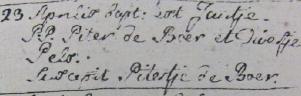 23 Aprilis bapt: est Jantje.
P.P. Piter de Boer et Dieuwtje
Pels.
suscepit Pitertje de Boer.